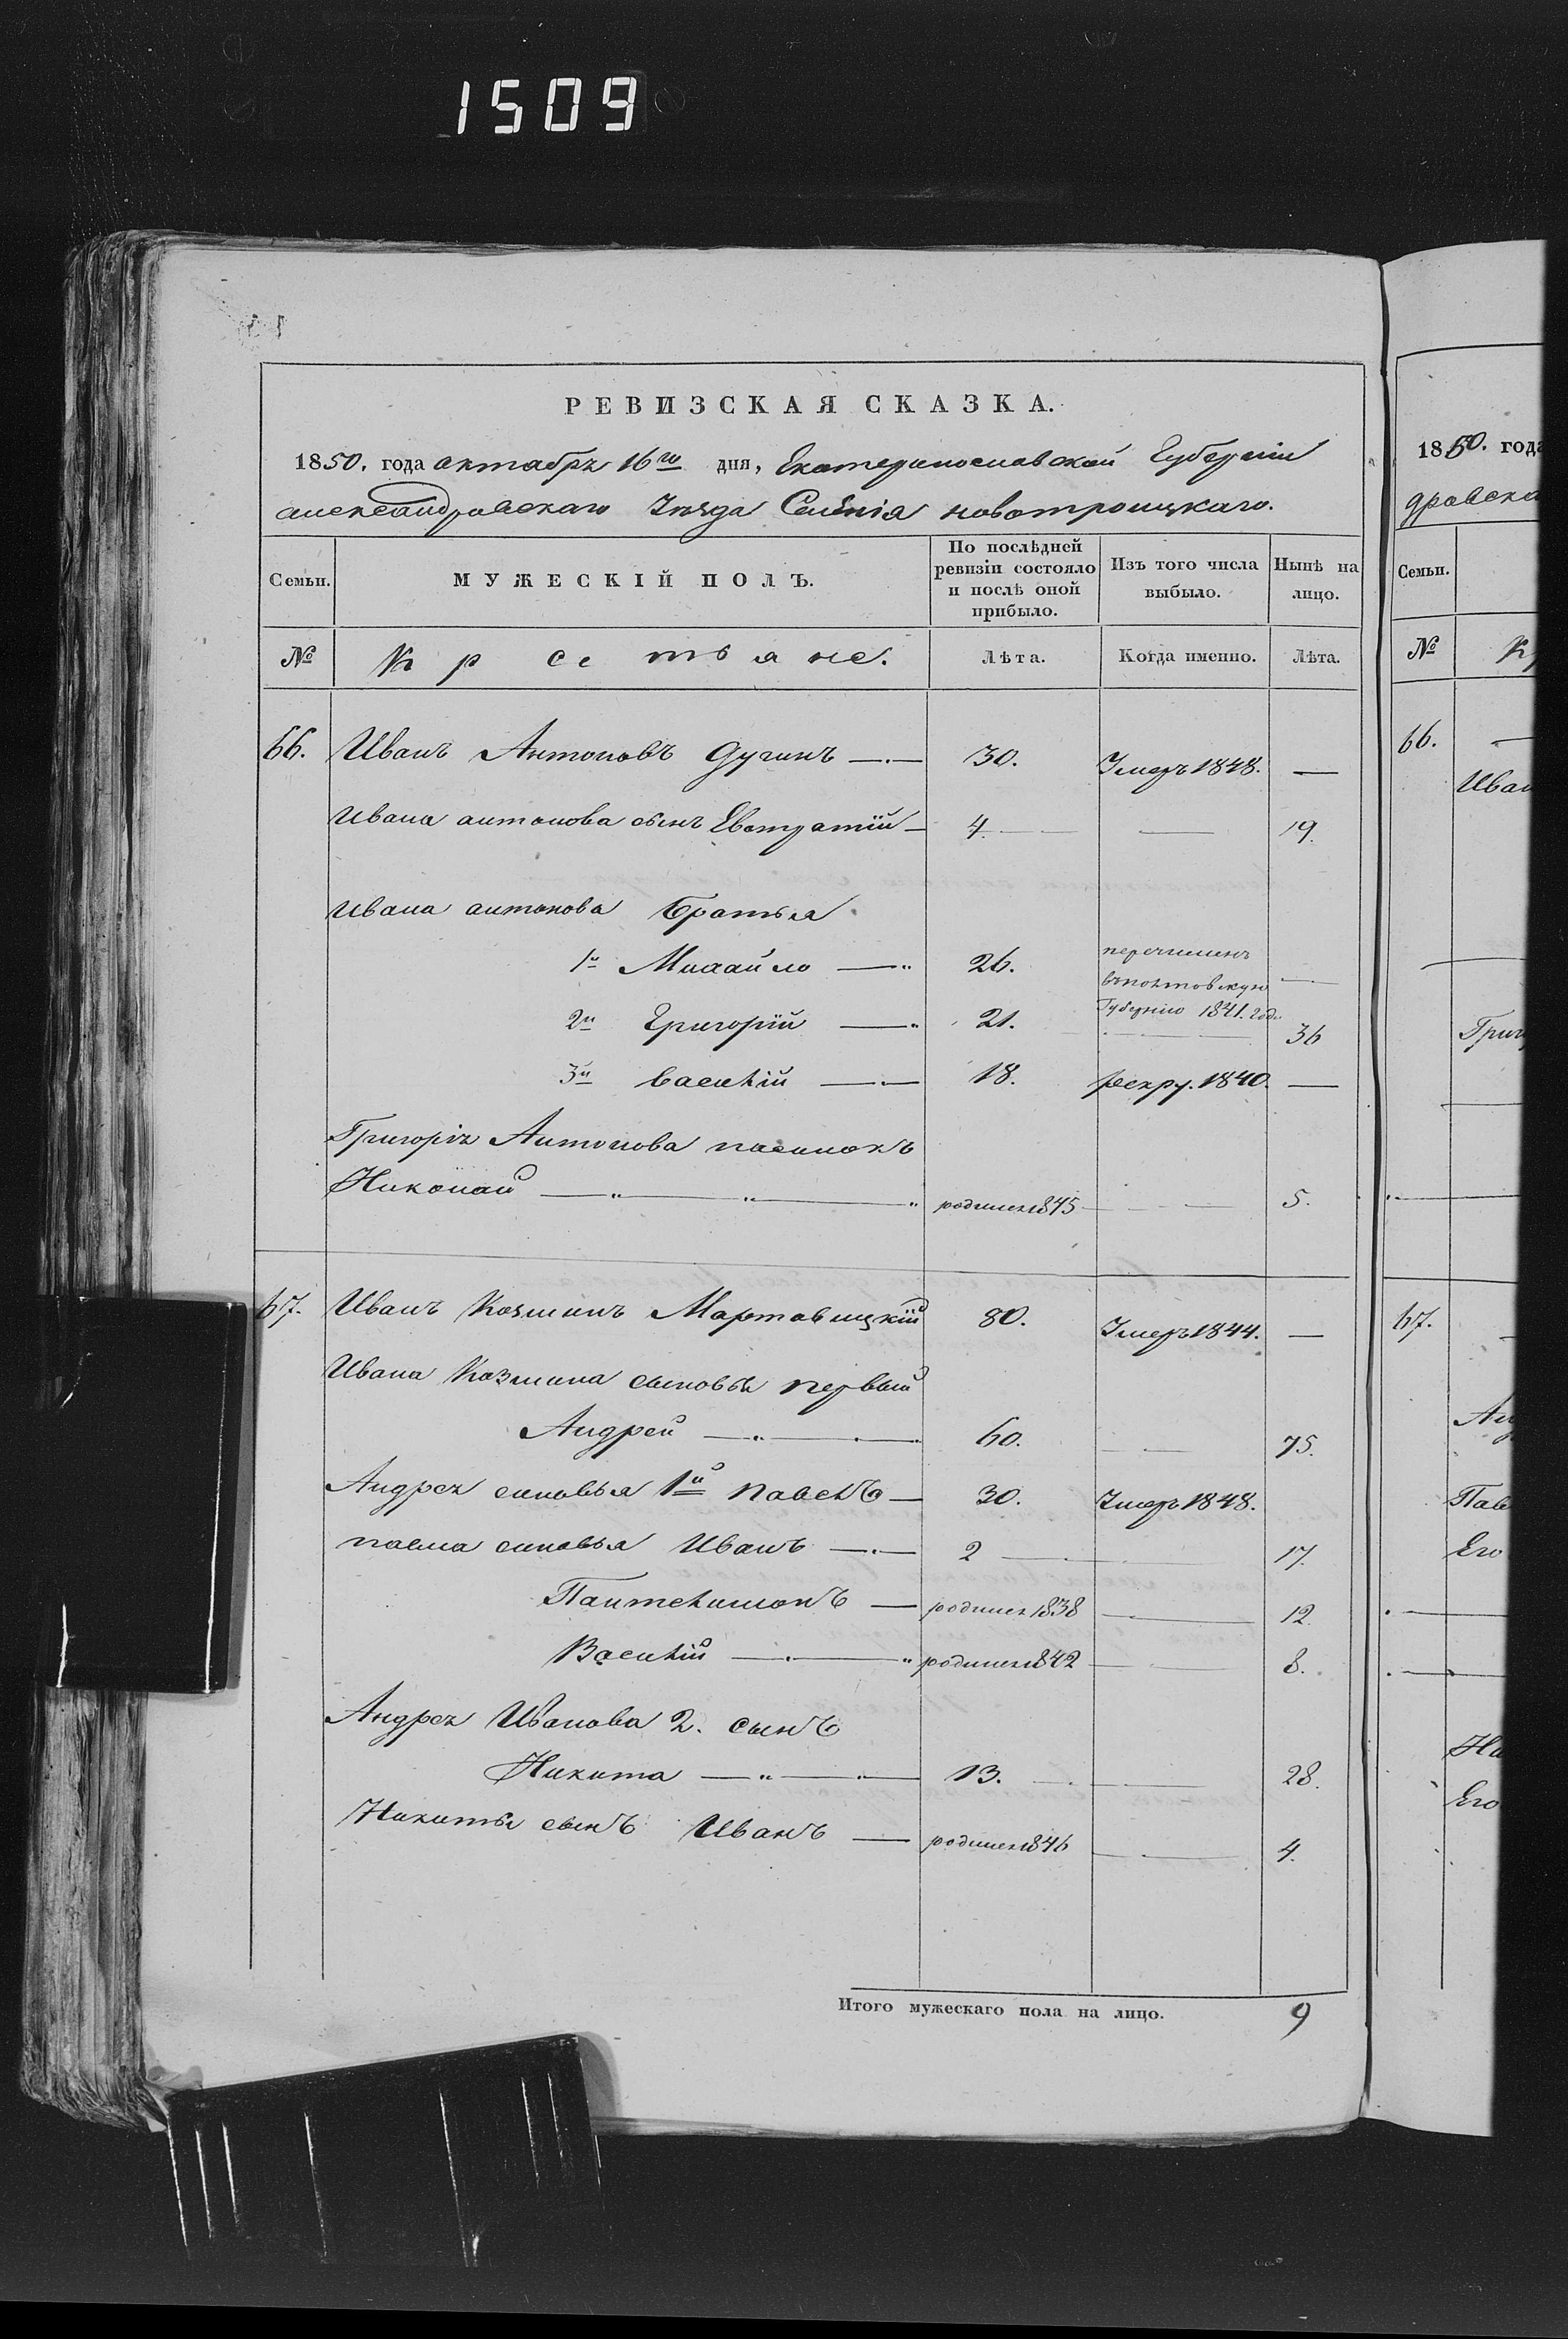 1509
РЕВИЗСКАЯ СКАЗКА.
1850, года октября 16го дня, Екатеринославской Губерніи
александровскаго Уезда Селенія новотроицкаго.
Семьи. МУЖЕСКІЙ ПОЛЪ. По послѣдней ревизіи состояло и послѣ оной прибыло. Изъ того числа выбыло. Нынѣ на лицо.
№ Крестьяне. Лѣта. Когда именно. Лѣта.
66. Иванъ Антоновъ Дугинъ 30. Умеръ 1848. —
Ивана антонова сынъ Евстратій 4. — 19.
Ивана антонова братья
1й Михайло 26. перечисленъ
въ полтовскую —
Губернію 1841. года
2й Григорій 21. — 36
3й Василій 18. рекру. 1840. —
Григорія Антонова пасинокъ
Николай родился 1845 — 5.
67. Иванъ Козминъ Мартовицкій 80. Умеръ 1844. —
Ивана Козмина сыновья первый
Андрей 60. — 75.
Андрея синовья 1й Павелъ 30. Умеръ 1848.
павла синовья Иванъ 2 — 17.
Пантелимонъ родился 1838 — 12
Василій родился 1842 — 8.
Андрея Иванова 2. сынъ
Никита 13. — 28.
Никиты сынъ Иванъ родился 1846 — 4.
Итого мужескаго пола на лицо. 9
1850. года
дровска
Семьи.
№ Кр
66. —
Иван
Григ
67.
Ан
Пав
Его
Ни
Его